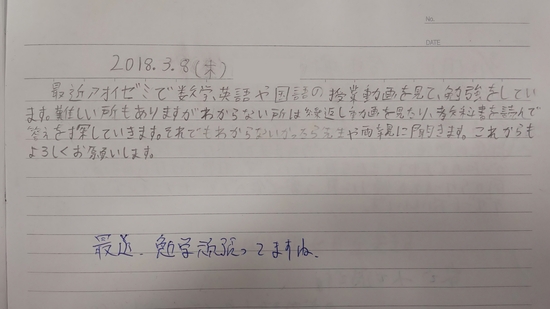 No.
DATE
2018.3.8(木)
最近アオイゼミで数学、英語や国語の授業動画を見て、勉強をしてい
ます。難しい所もありますがわからない所は繰返し動画を見たり、教科書を読んで
答えを探していきます。それでもわからないかったら先生や両親に聞きます。これからも
よろしくお願いします。
最近、勉学頑張ってますね。